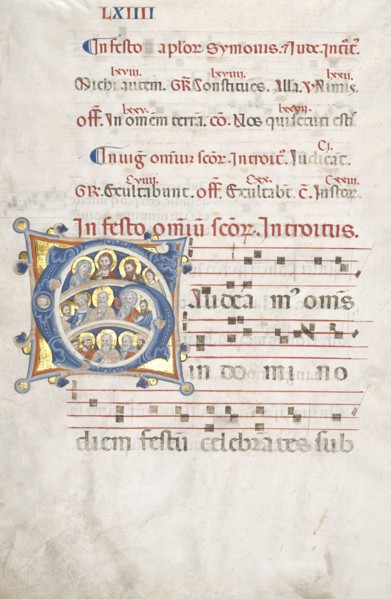 LXIIII
In festo aplor Symonis. Jude. Introit.
lxviii. lxviiii. lxxii.
Michi autem. GR. Constitues. Alla. V. Nimis.
lxxv.
Off. In omem terra. co. Vos qui secuti estis
In vig omium scor. Introit. Iudicat.
CI.
Cviiii. Cxx. Cxxiii.
GR. Exultabunt. off. Exultabt. C. Iustor.
In festo omiu scor. Introitus.
Gaudeamº omnes
in domino
diem festū celebrātes sub